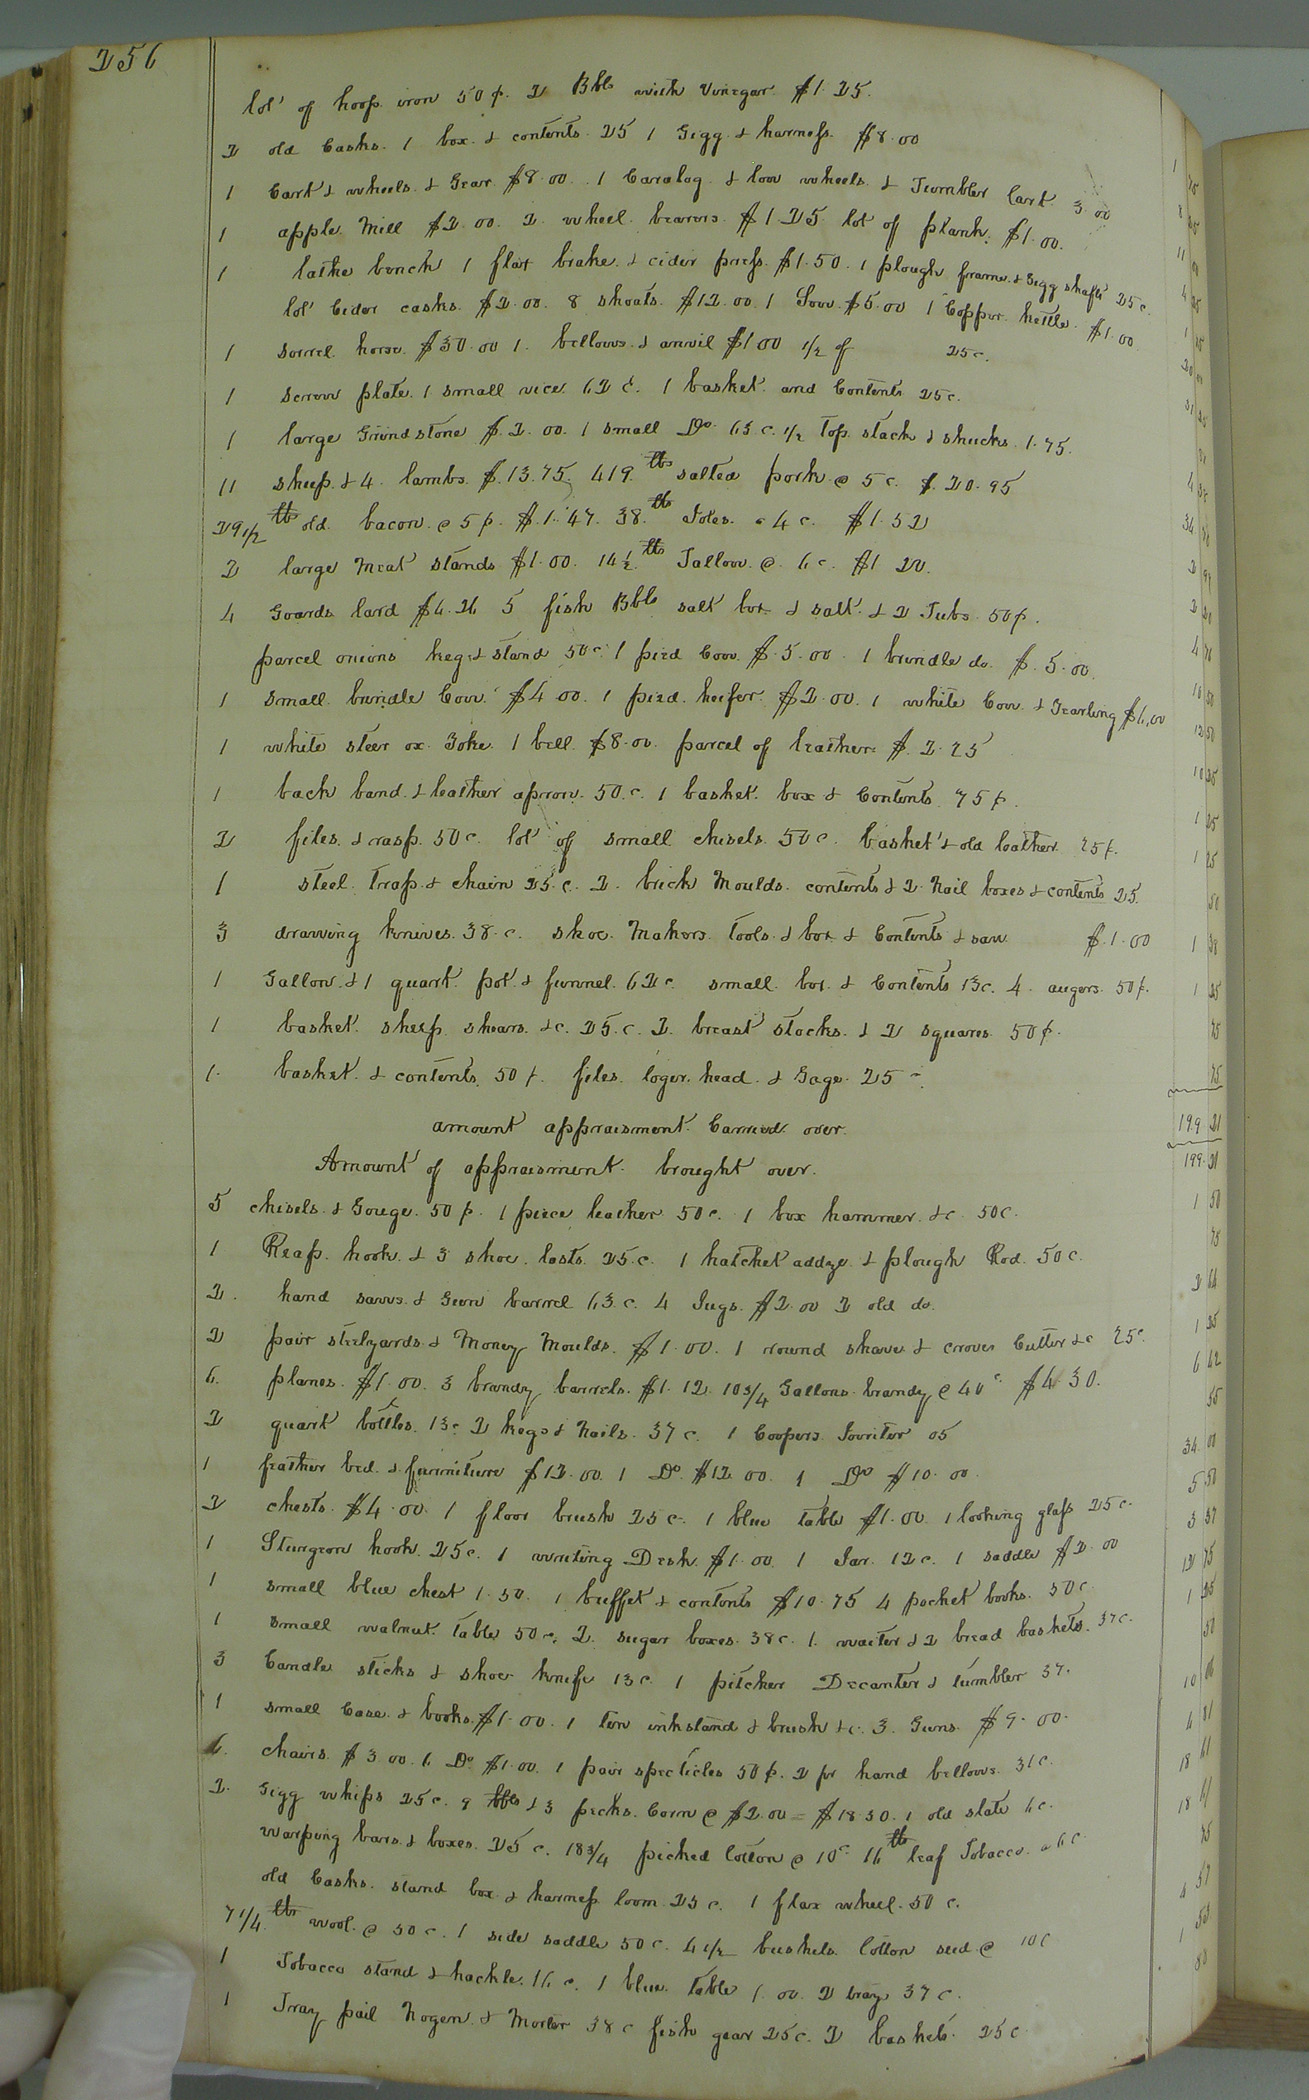 256
lot of hoop iron 50¢. 2 Bbls with Vinegar $1.25.
2 old Casks. 1 box & contents 25 1 Gigg & harness. $8.00
1 Cart & wheels & Gear $8.00. 1 Caralog & low wheels & Tumbler Cart 3.00
1 apple Mill $2.00. 2 wheel bearers $1.25 lot of plank. $1.00.
1 lathe bench 1 flax brake & cider press. $1.50. 1 plough frame & Gigg shafts 25c.
lot Cider casks. $2.00. 8 shoats. $12.00. 1 Sow $5.00 1 Copper kettle. $1.00
1 sorrel horse. $30.00 1 bellows & anvil $1.00 1/2 of 25c.
1 screw plate. 1 small vice 62c. 1 basket and Contents 25c.
1 large Grindstone $2.00. 1 small Do 63c. 1/2 top stack & shucks 1.75.
11 sheep & 4 lambs. $13.75. 419 lbs salted pork @ 5c. $20.95
29 1/2 lbs old bacon @ 5¢. $1.47. 38 lbs Joles @ 4c. $1.52
2 large Meat stands $1.00. 14 1/2 lbs Tallow @ 6c. $1 20.
4 Goards lard $4.26 5 fish Bbls salt box & salt & 2 Tubs 50¢.
parcel onions keg & stand 50c. 1 pied Cow. $5.00. 1 brindle do. $5.00.
1 small brindle Cow $4.00. 1 pied heifer $2.00. 1 white Cow & Yearling $6.00
1 white steer ox Yoke. 1 bell $8.00. parcel of leather $2.25
1 back band & leather apron. 50.c. 1 basket box & Contents 75¢.
2 files & rasp. 50c. lot of small chisels. 50c. basket & old leather 25¢.
1 steel trap & chain 25.c. 2 brick Moulds. contents & 2 Nail boxes & contents 25.
3 drawing knives. 38.c. shoe Makers tools & box & Contents & saw $1.00
1 Gallon & 1 quart pot & funnel. 62c. small box & Contents 13c. 4 augers. 50¢.
1 basket sheep shears &c. 25.c. 2 breast stocks & 2 squares 50¢.
1. basket & contents. 50¢. files. loger. head & Gage 25
amount appraisment Carried over.
Amount of appraisment brought over.
5 chisels & Gouge. 50¢. 1 piece leather 50c. 1 box hammer &c 50c.
1 Reap hook & 3 shoe lasts 25.c. 1 hatchet addze & plough Rod. 50c.
2. hand saws & Gun barrel 63.c. 4 Jugs. $2.00 2 old do.
2 pair steelyards & Money Moulds. $1.00. 1 round shave & croves Cutter &c 25c.
6. planes. $1.00. 3 brandy barrels. $1.12. 10 3/4 Gallons brandy @ 40c $4.30.
2 quart bottles. 13c 2 kegs & Nails. 37c. 1 Coopers 05
1 feather bed & furniture $12.00. 1 Do $12.00 1 Do $10.00
2 chests. $4.00. 1 floor brush 25c. 1 blue table $1.00. 1 looking glass 25c.
1 Sturgeon hook. 25c. 1 writing Desk. $1.00 1 Jar. 12c. 1 saddle $2.00
1 small blue chest 1.50. 1 buffet & contents $10.75 4 pocket books. 50c
1 small walnut table 50c. 2 sugar boxes. 38c. 1 waiter & 2 bread baskets. 37c.
3 Candle sticks & shoe knife 13c. 1 pitcher Decanter & tumbler 37.
1 small Case & books. $1.00. 1 tin inkstand & brush &c. 3 Guns. $9.00.
6. chairs. $3.00. 6 Do $1.00. 1 pair specticles 50¢. 2 pr hand bellows. 31c.
2. Gigg whips 25c. 9 bbls & 3 pecks Corn @ $2.00 = $18.30. 1 old slate 6c.
warping bars & boxes. 25c. 18 3/4 picked Cotton @ 10c. 16 lb leaf Tobacco @ 6c
old Casks. stand box & harness loom 25c. 1 flax wheel. 50c.
7 1/4 lbs wool @ 30c. 1 side saddle 50c. 4 1/2 bushels Cotton seed @ 10c
1 Tobacco stand & hackle. 16c. 1 blue table 1.00. 2 tray 37c.
1 Tray pail Nogen & Morter 38c fish gear 25c. 2 baskets 25c
199 21
199 21